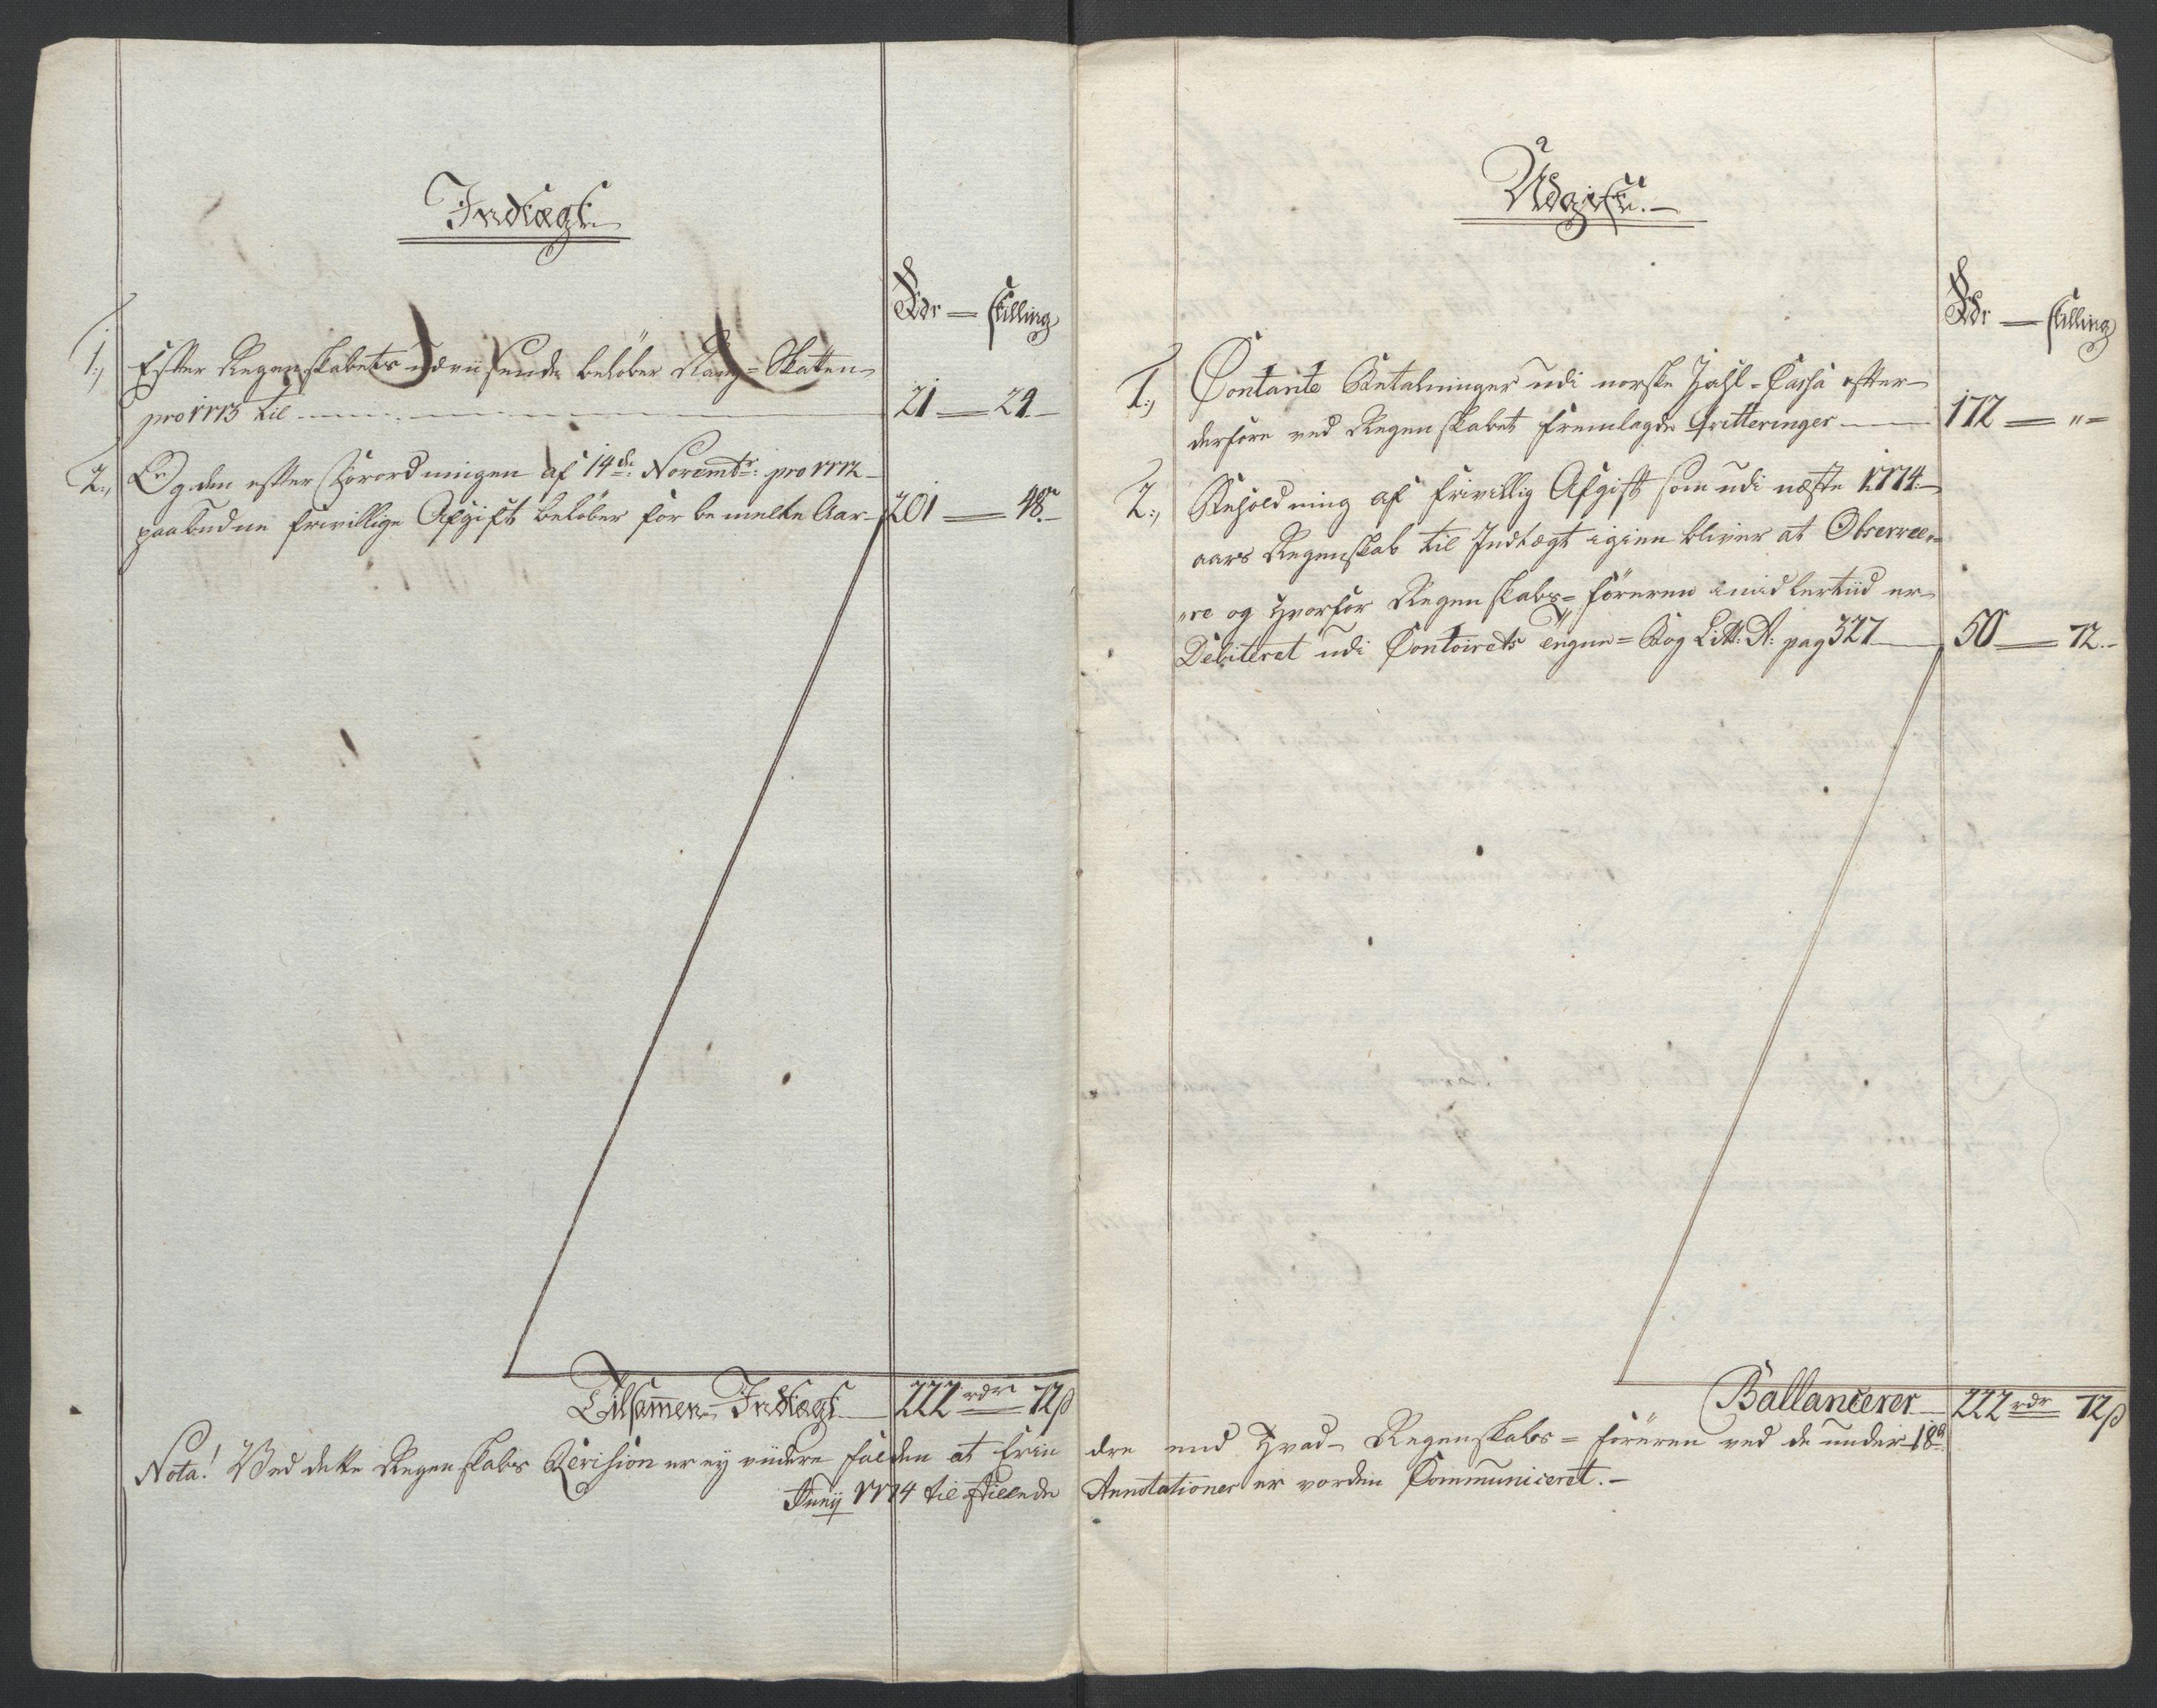 Indtægt
Rdr — skilling
1., Efter Regenskabets udviisende beløber Rang-Skatten
pro 1773 til 21 — 24.
2., Og den efter Forordningen af 14de Novembr: pro 1772
paabudne frivillige Afgift beløber for bemelte Aar 201 — 48.
Tilsammen Indtægt 222 rdr 72 ß
Udgift.
Rdr — skilling
1., Contante Betalninger udi norske Zahl-Cassa efter
derfore ved Regenskabet fremlagde Qvitteringer 172 — „
2., Beholdning af frivillig Afgift som udi næste 1774
aars Regenskab til Indtægt igien bliver at Observee„
„re og hvorfor Regenskabs-føreren imidlertiid er
Debiteret udi Contoirets Bog Litt: A: pag 327 50 — 72.
Ballancerer 222 rdr 72 ß
Nota! Ved dette Regenskabs Revision er ey viidere falden at Erin dre end hvad Regenskabs-føreren ved de under 18de
Junij 1774 tilstillede Annotationer er vorden Communiceret.